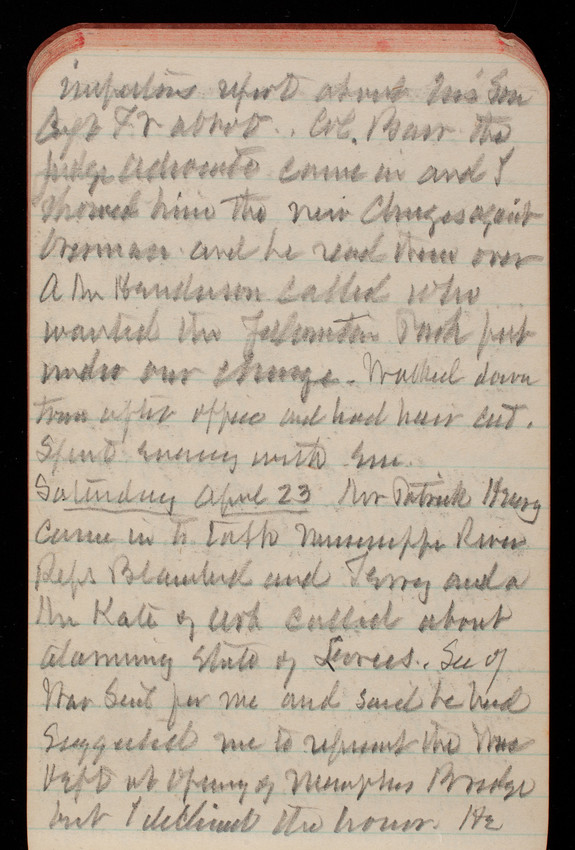 inspectors report about his son
Capt F V abbot. Col. Barr the
judge advocate came in and I
showed him the new charges against
Overman and he read them over
A Mr Henderson called who
wanted the Park put
under our charge. Walked down
town after office and had hair cut.
Spent evening with Em.
Saturday April 23 Mr Patrick Henry
came in to talk Mississippi River
Reps Blanchard and Terry and a
Mr Kate of Ark called about
alarming state of Levees. Sec of
War sent for me and said he had
suggested me to represent the War
Dept at opening of Memphis Bridge
but I declined the honor. He